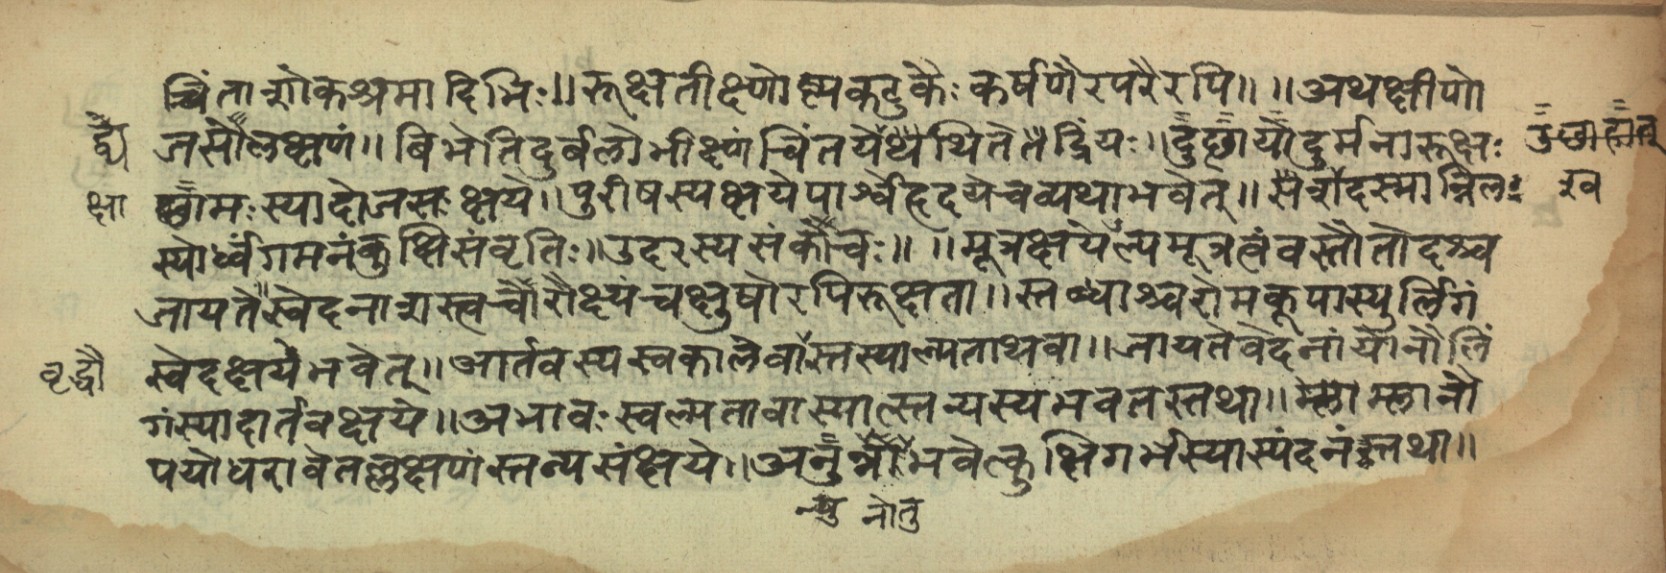 चिंताशोकश्रमादिभिः॥ रूक्षतीक्ष्णोष्णकटुकैः कर्षणैरपरैरपि॥ ॥ अथक्षीणो
जसोलक्षणं॥ बिभेतिदुर्बलोभीक्ष्णं चिंतयेद्व्यथितेंद्रियः॥ दुछायोदुर्मनारूक्षः
क्षामःस्यादोजसःक्षये॥ पुरीषस्यक्षयेपार्श्वेहृदयेचव्यथाभवेत्॥ सशब्दस्यानिल
स्योर्ध्वगमनंकुक्षिसंवृतिः॥ उदरस्य संकोचः॥ ॥ मूत्रक्षयेल्पमूत्रत्वंवस्तौतोदश्च
जायते स्वेदनाशस्त्वचोरौक्ष्यंचक्षुषोरपिरूक्षता॥ स्तब्धाश्चरोमकूपास्युर्लिंगं
वृद्धौ
स्वेदक्षयेभवेत्॥ आर्तवस्यस्वकालेचास्तस्याल्पताथवा॥ जायतेवेदनायोनौलिं
गंस्यादार्तवक्षये॥ अभावःस्वल्पतावास्यात्स्तन्यस्यभवतस्तथा॥ म्लानौ
पयोधरावेतल्लक्षणंस्तन्यसंक्षये॥ अनुन्नोभवेत्कुक्षिगर्भस्यास्पंदनंतथा॥